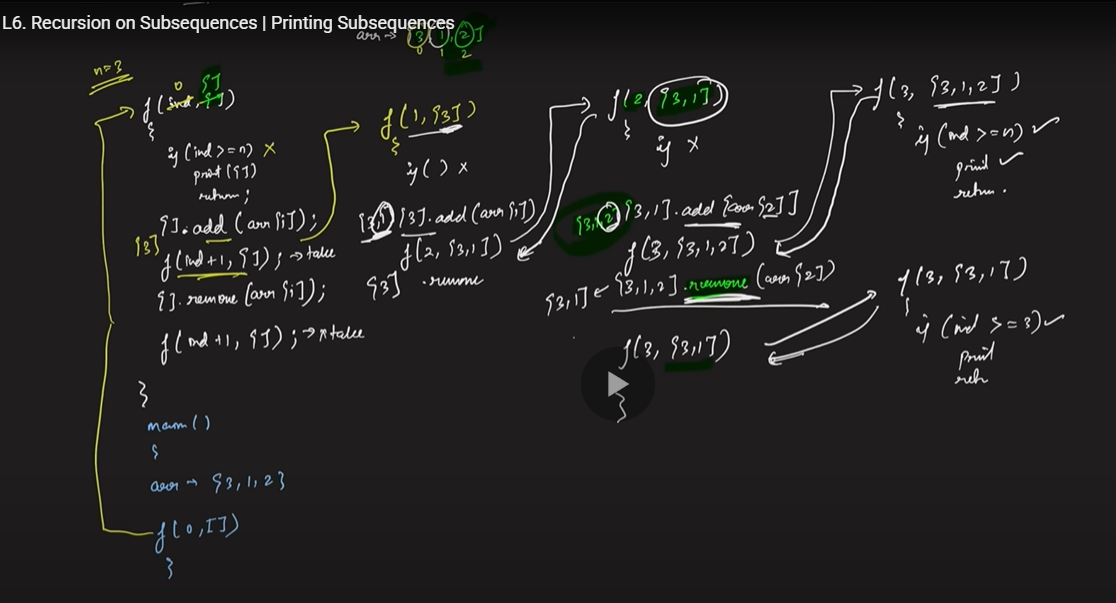 L6. Recursion on Subsequences | Printing Subsequences
arr → [3, 1, 2]
0 1 2
n=3
0 []
f(ind, [])
{
if (ind >= n) x
print ([])
return;
[].add (arr[i]);
[3]
f(ind+1, []); → take
[].remove (arr[i]);
f(ind+1, []); → x take
}
main()
{
arr → {3, 1, 2}
f(0, [])
}
f(1, [3])
{
if () x
[3,1] [3].add (arr[i])
f(2, [3,1])
[3] .remove
f(2, [3,1])
{
if x
[3,1,2] [3,1].add [arr[2]]
f(3, [3,1,2])
[3,1] ← [3,1,2].remove (arr[2])
f(3, [3,1])
}
f(3, [3,1,2])
{
if (ind >= n) ✓
print ✓
return.
f(3, [3,1])
{
if (ind >= 3) ✓
print
retn